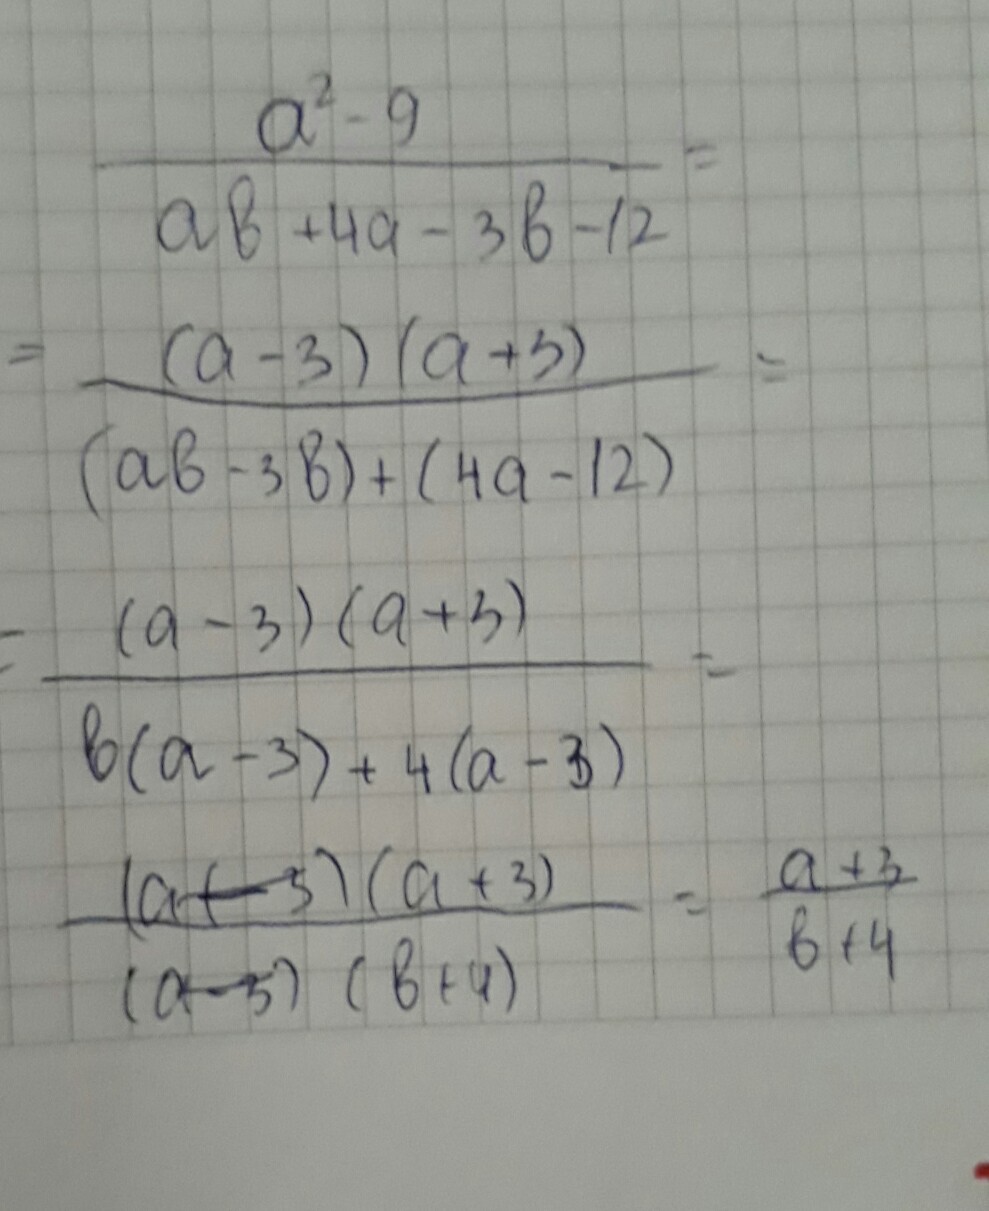 a² - 9 / ab + 4a - 3b - 12 =
= (a - 3) (a + 3) / (ab - 3b) + (4a - 12) =
= (a - 3) (a + 3) / b(a - 3) + 4(a - 3) =
(a - 3) (a + 3) / (a - 3) (b + 4) = a + 3 / b + 4